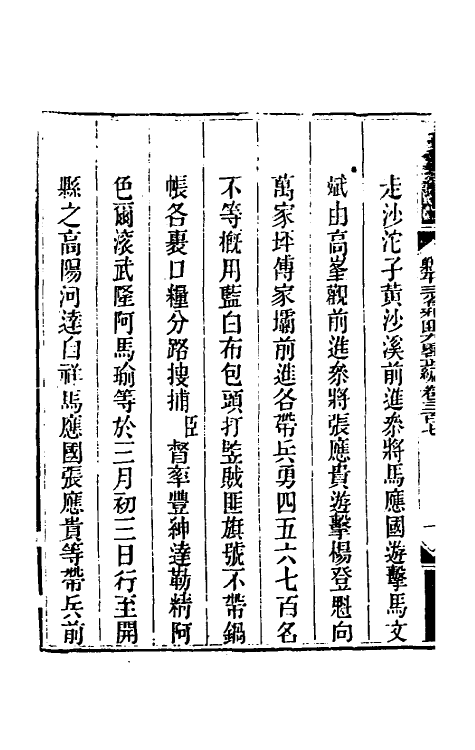 走沙沱子黃沙溪前進叅將馬應國遊擊馬文
斌由高峯觀前進叅將張應貴遊擊楊登魁向
萬家坪傳家壩前進各帶兵勇四五六七百名
不等槪用藍白布包頭打竪賊匪旗號不帶鍋
帳各褁口糧分路搜捕臣督率豐紳達勒精阿
色爾滚武隆阿馬瑜等於三月初三日行至開
縣之高陽河達白祥馬應國張應貴等帶兵前